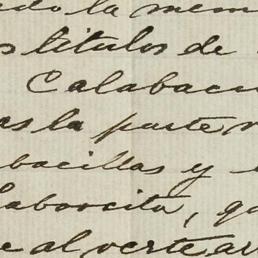 do la mem
s titulos de
Calabac
as la parte
bacillas y
laborcita, q
e al verte ar